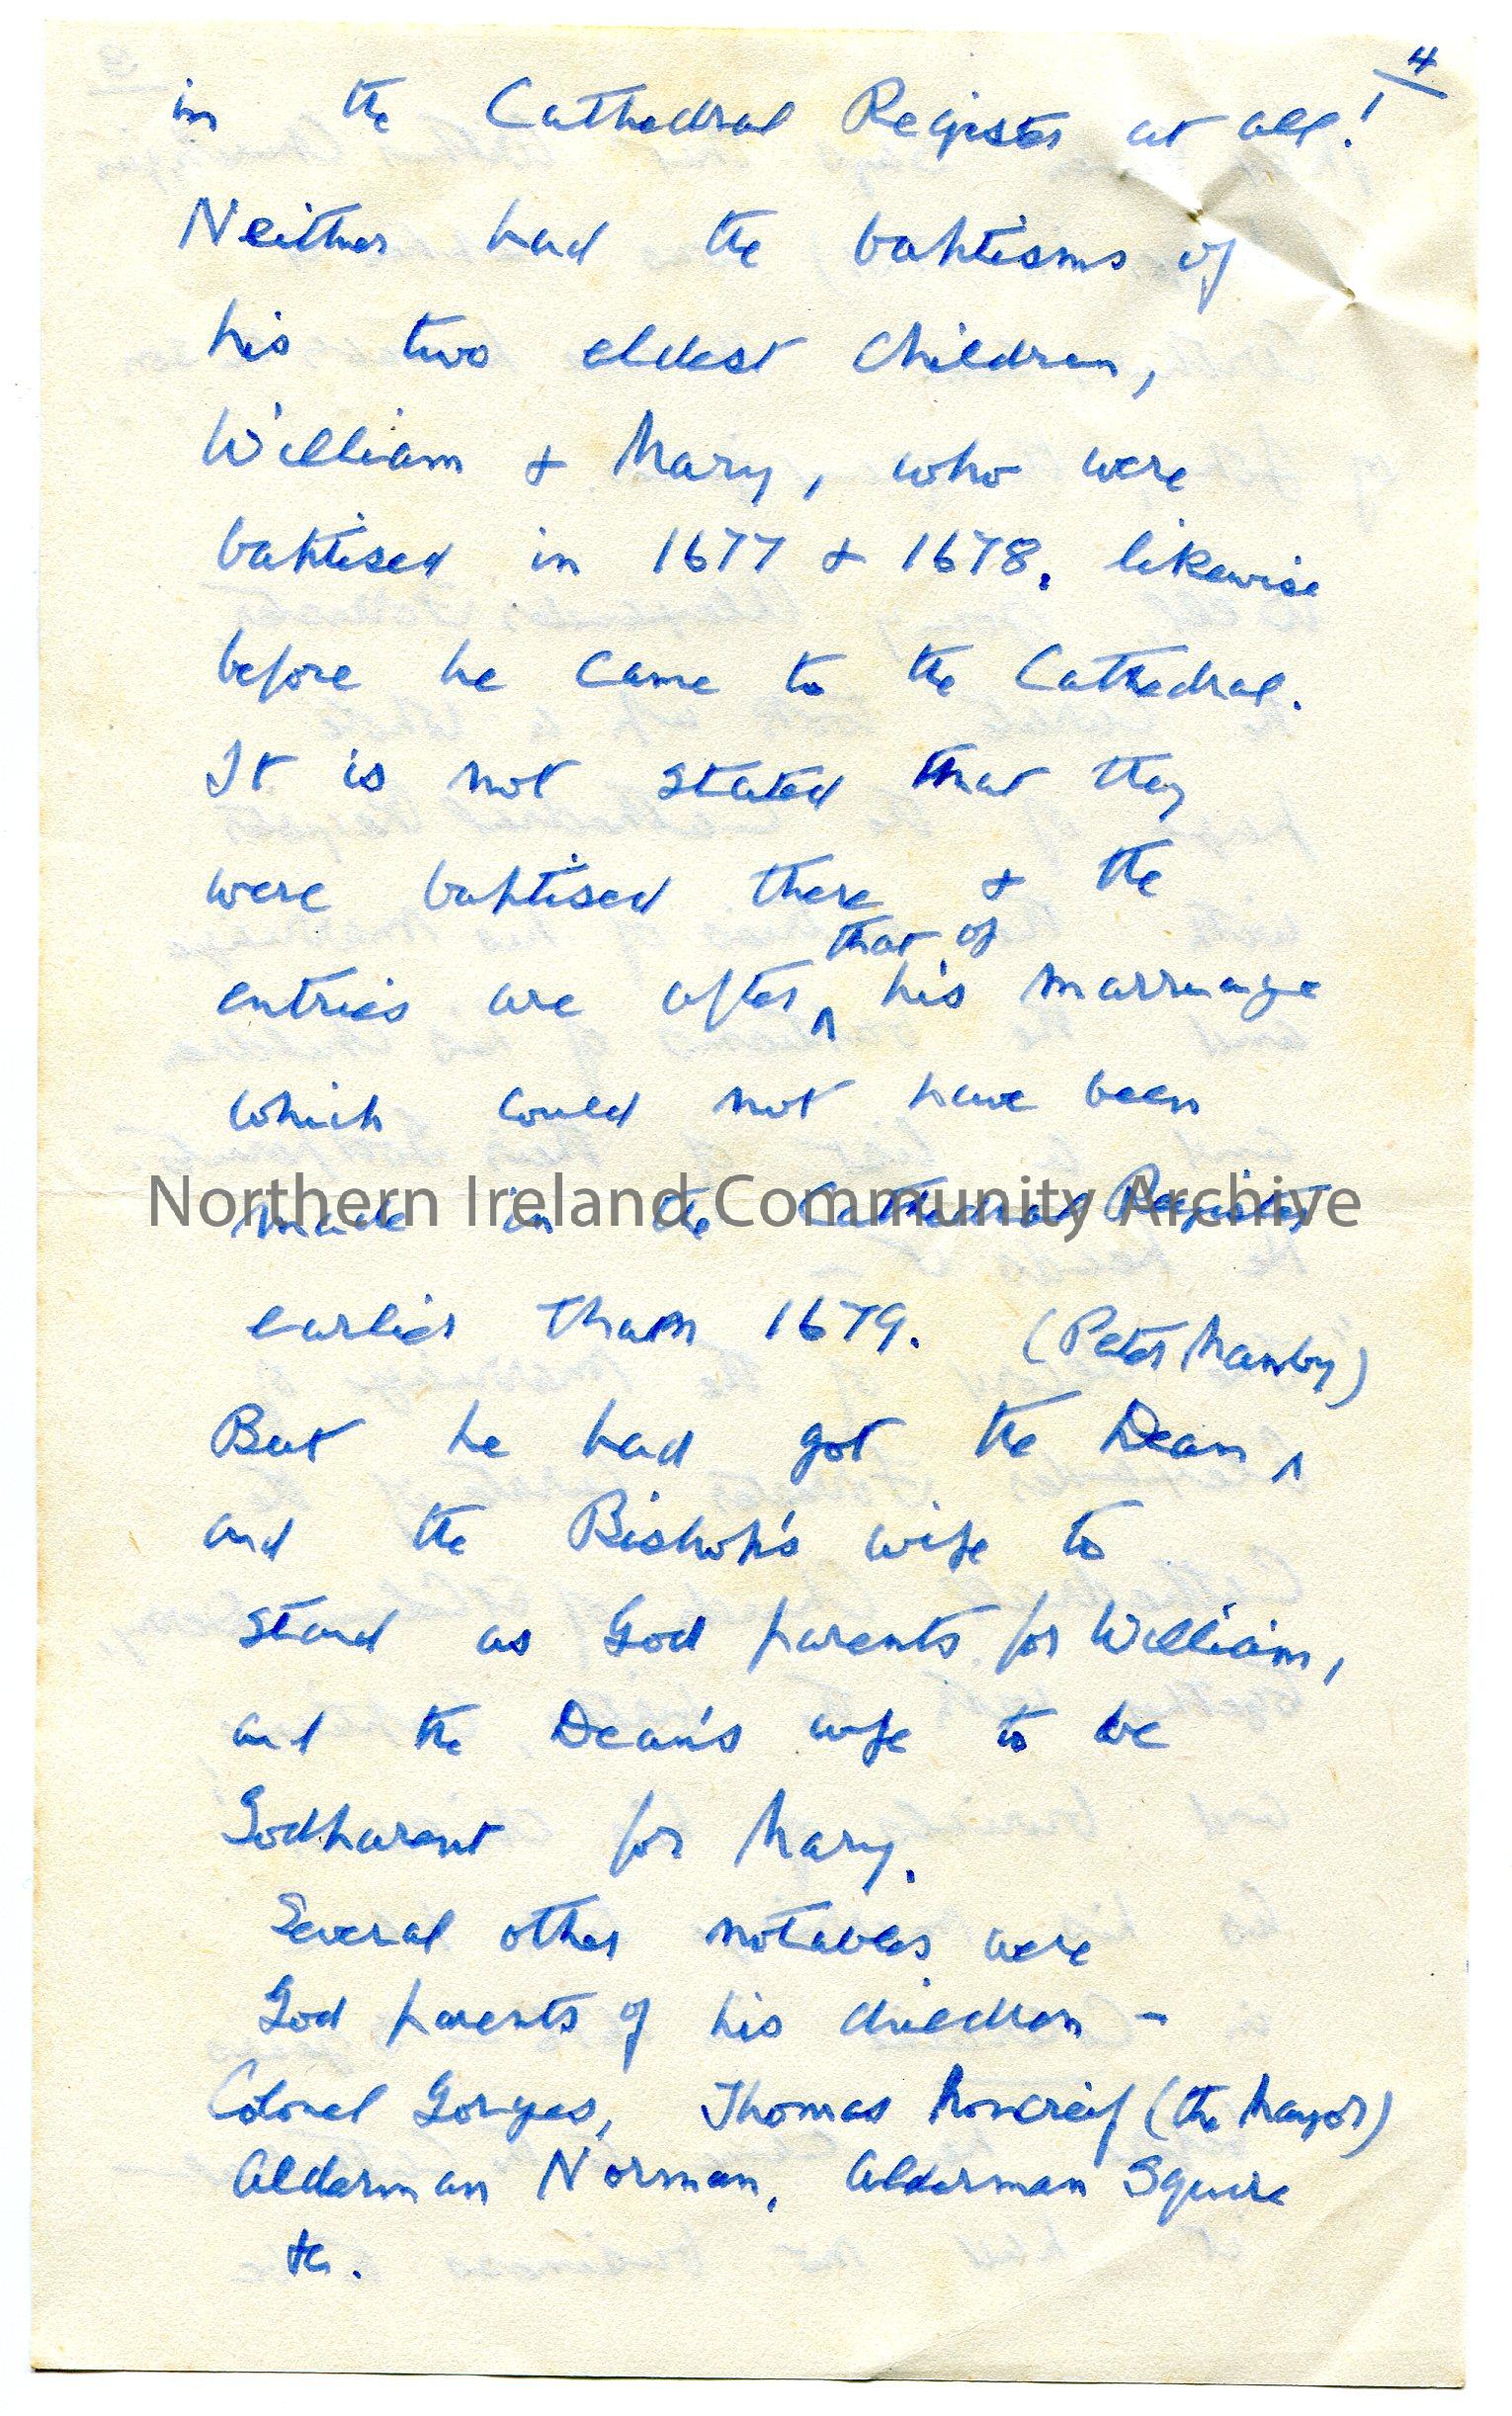 4
in the Cathedral Register at all!
Neither had the baptisms of
his two eldest children,
William & Mary, who were
baptised in 1677 & 1678, likewise
before he came to the Cathedral.
It is not stated that they
were baptised there & the
that of
entries are after ^ his marriage
which could not have been
Northern Ireland Community Archive
made in the Cathedral Register
earlier than 1679.
(Peter Manby)
But he had got the Dean ^
and the Bishop's wife to
stand as God parents for William,
and the Dean's wife to be
Godparent for Mary.
Several other notables were
God parents of his children -
Colonel Gorges, Thomas Moncreif (the Mayor)
Alderman Norman, Alderman Squire
&c.